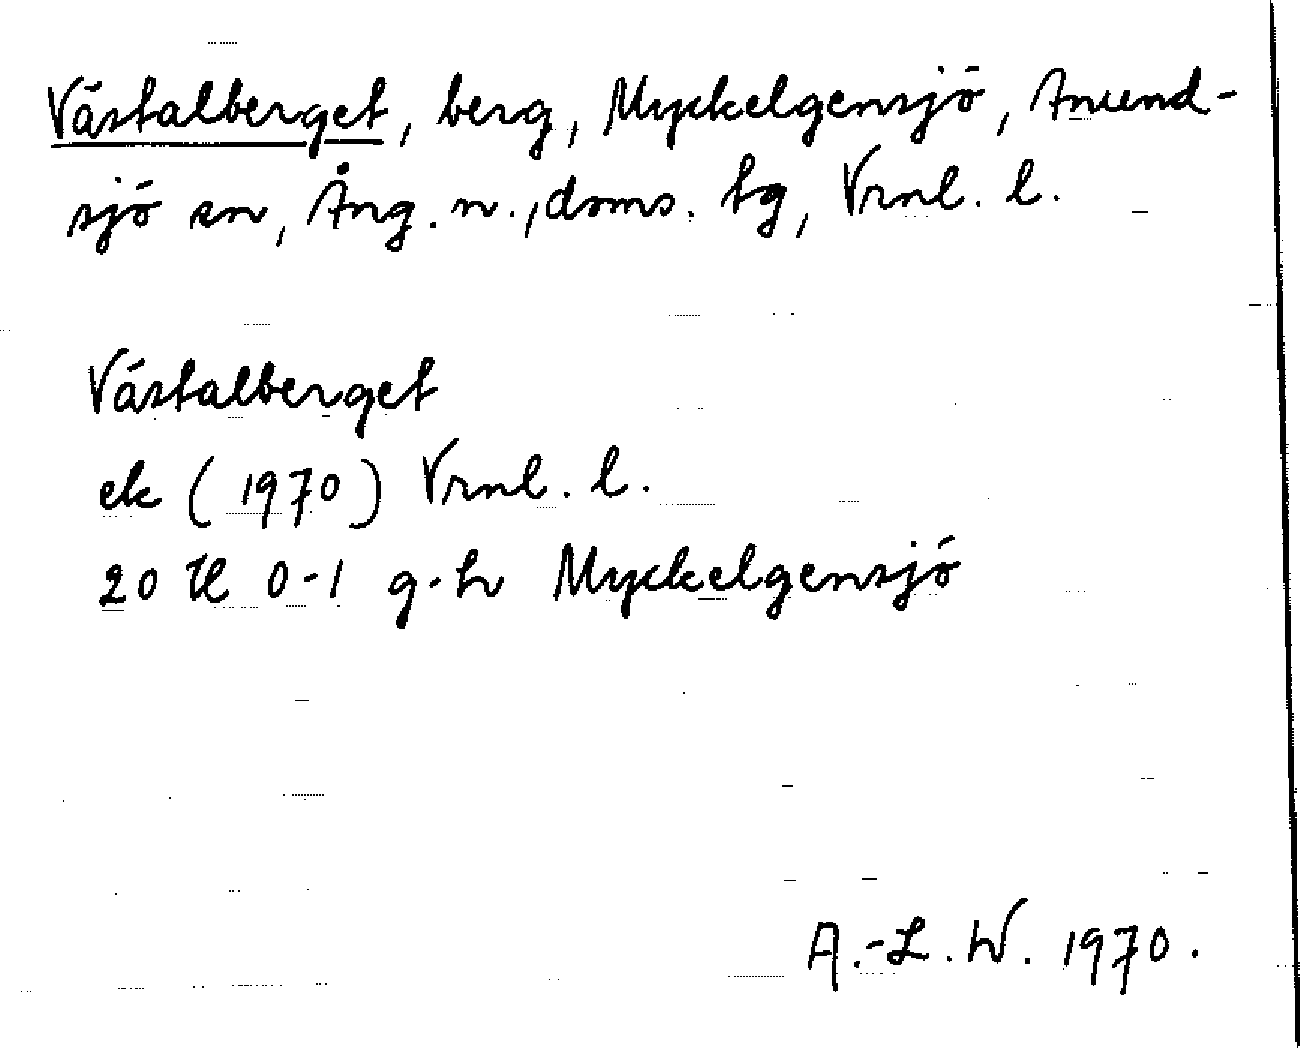 Västalberget, berg, Myckelgensjö, Anund-
sjö sn, Ång. n., doms. tg, Vrnl. l.
Västalberget
ek (1970) Vrnl. l.
20 H 0-1 g-h Myckelgensjö
A.-L. W. 1970.